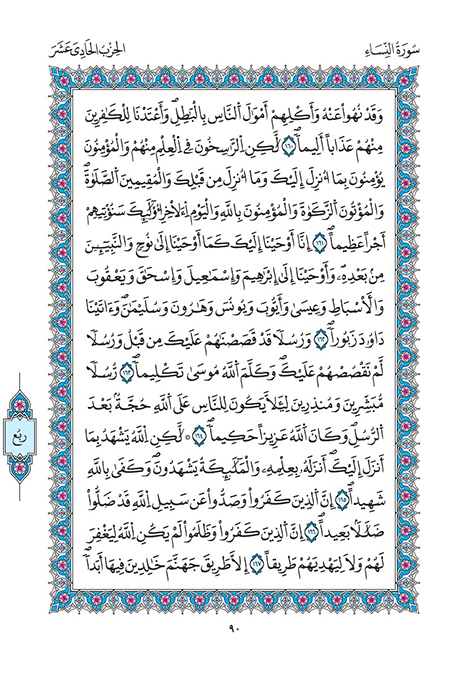 سُورَةُ النِّسَاءِ
الحِزْبُ الحَادِي عَشَرَ
وَقَدْ نُهُواْ عَنْهُ وَأَكْلِهِمُۥٓ أَمْوَٰلَ اَلنَّاسِ بِالْبَٰطِلِۖ وَأَعْتَدْنَا لِلْكٰ۪فِرِينَ
مِنْهُمْ عَذَاباً أَلِيماًۖ ١٦٠ لَّٰكِنِ اِلرَّٰسِخُونَ فِے اِلْعِلْمِ مِنْهُمْ وَالْمُؤْمِنُونَ
يُومِنُونَ بِمَآ أُنزِلَ إِلَيْكَ وَمَآ أُنزِلَ مِن قَبْلِكَ وَالْمُقِيمِينَ اَلصَّلَوٰةَۖ
وَالْمُؤْتُونَ اَلزَّكَوٰةَ وَالْمُؤْمِنُونَ بِاللَّهِ وَالْيَوْمِ اِءلَاخِرِۖ أُوْلَٰٓئِكَ سَنُؤْتِيهِمُۥٓ
أَجْراً عَظِيماًۖ ١٦١ إِنَّآ أَوْحَيْنَآ إِلَيْكَ كَمَآ أَوْحَيْنَآ إِلَىٰ نُوحٍ وَالنَّبِيٓـِٕينَ
مِنۢ بَعْدِهِۦۖ وَأَوْحَيْنَآ إِلَىٰٓ إِبْرَٰهِيمَ وَإِسْمَٰعِيلَ وَإِسْحَٰقَ وَيَعْقُوبَ
وَالْأَسْبَاطِ وَعِيسَىٰ وَأَيُّوبَ وَيُونُسَ وَهَٰرُونَ وَسُلَيْمَٰنَۖ وَءَاتَيْنَا
دَاوُۥدَ زَبُوراًۖ ١٦٢ وَرُسُلاً قَدْ قَصَصْنَٰهُمْ عَلَيْكَ مِن قَبْلُ وَرُسُلاً
لَّمْ نَقْصُصْهُمْ عَلَيْكَۖ وَكَلَّمَ اَللَّهُ مُوسَىٰ تَكْلِيماًۖ ١٦٣ رُّسُلاً
مُّبَشِّرِينَ وَمُنذِرِينَ لِيَلَّا يَكُونَ لِلنَّاسِ عَلَى اَللَّهِ حُجَّةُۢ بَعْدَ
اَلرُّسُلِۖ وَكَانَ اَللَّهُ عَزِيزاً حَكِيماًۖ ١٦٤ ۞ لَّٰكِنِ اِللَّهُ يَشْهَدُ بِمَآ
أَنزَلَ إِلَيْكَۖ أَنزَلَهُۥ بِعِلْمِهِۦۖ وَالْمَلَٰٓئِكَةُ يَشْهَدُونَۖ وَكَفَىٰ بِاللَّهِ
شَهِيداًۖ ١٦٥ إِنَّ اَلذِينَ كَفَرُواْ وَصَدُّواْ عَن سَبِيلِ اِللَّهِ قَد ضَّلُّواْ
ضَلَٰلاَۢ بَعِيداًۖ ١٦٦ إِنَّ اَلذِينَ كَفَرُواْ وَظَلَمُواْ لَمْ يَكُنِ اِللَّهُ لِيَغْفِرَ
لَهُمْ وَلَا لِيَهْدِيَهُمْ طَرِيقاًۖ ١٦٧ إِلَّا طَرِيقَ جَهَنَّمَ خَٰلِدِينَ فِيهَآ أَبَداًۖ
ربع
٩٠